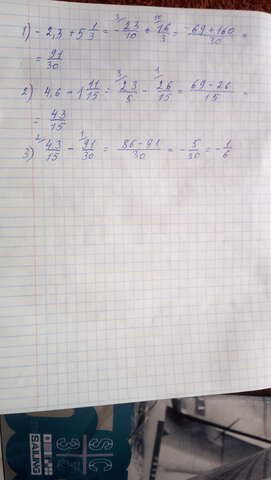 1) -2,3 + 5 1/3 = -23/10 + 16/3 = (-69+160)/30 =
= 91/30
2) 4,6 - 1 11/15 = 23/5 - 26/15 = (69-26)/15 =
= 43/15
3) 43/15 - 91/30 = (86-91)/30 = -5/30 = -1/6
SAILING
SC
SC